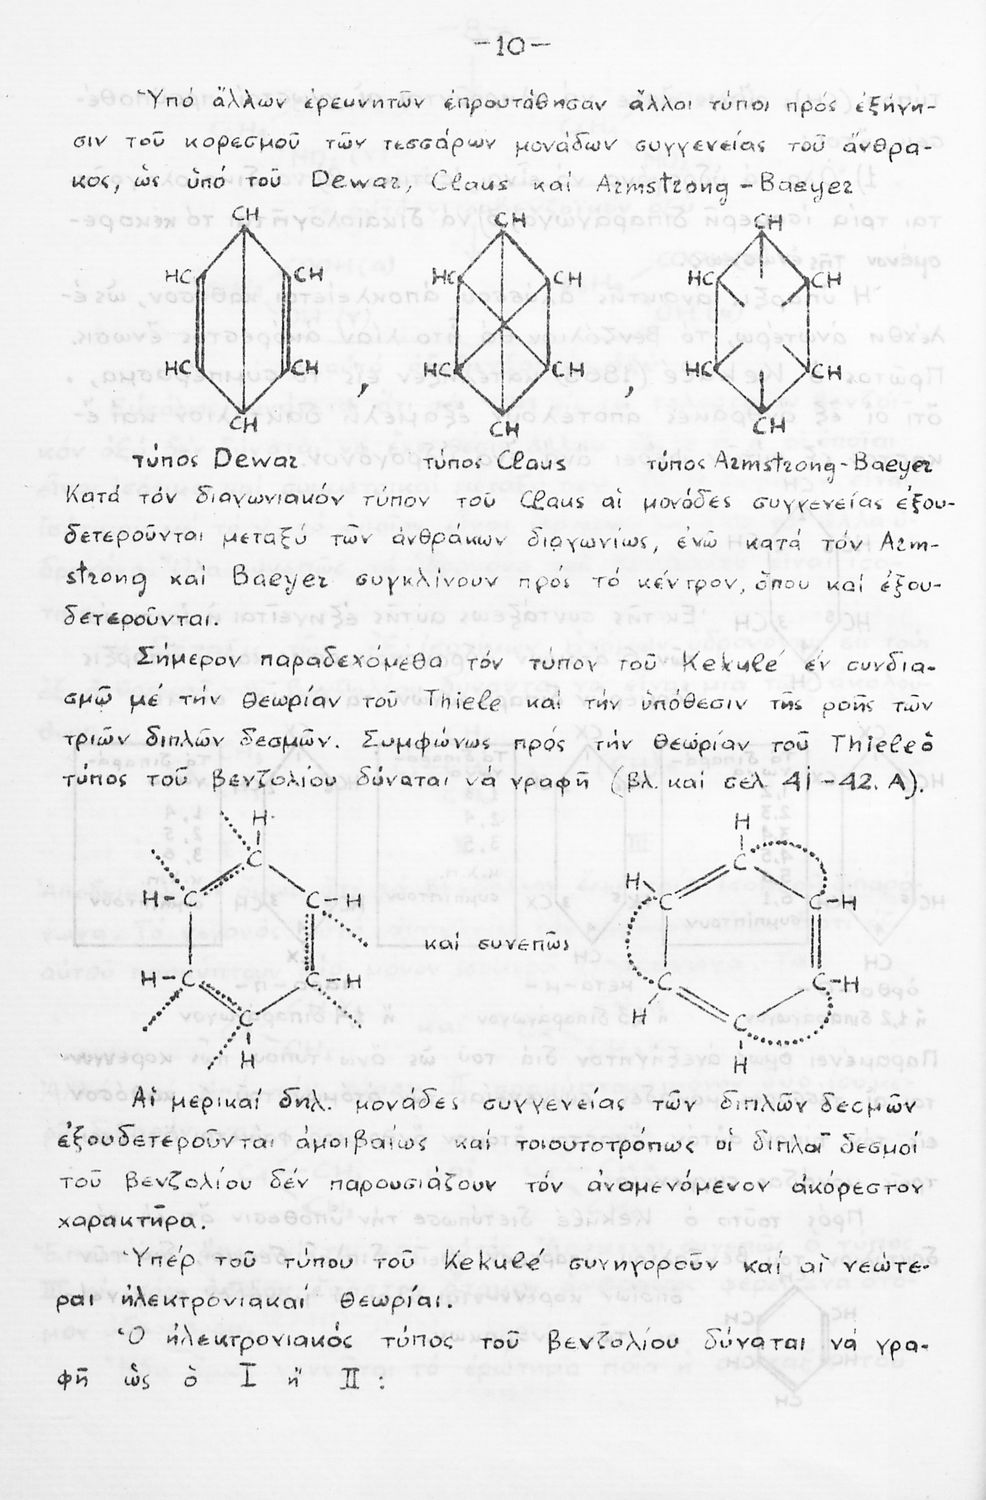 -10-
Ὑπό ἄλλων ἐρευνητῶν ἐπροτάθησαν ἄλλοι τύποι πρός ἐξήγη-
σιν τοῦ κορεσμοῦ τῶν τεσσάρων μονάδων συγγενείας τοῦ ἄνθρα-
κος, ὡς ὑπό τοῦ Dewar, Claus καί Armstrong-Baeyer
CH CH CH
HC CH HC CH HC CH
HC CH , HC CH , HC CH
CH CH CH
τύπος Dewar τύπος Claus τύπος Armstrong-Baeyer
Κατά τόν διαγωνιακόν τύπον τοῦ Claus αἱ μονάδες συγγενείας ἐξου-
δετεροῦνται μεταξύ τῶν ἀνθράκων διαγωνίως, ἐνῶ κατά τόν Arm-
strong καί Baeyer συγκλίνουν πρός τό κέντρον, ὅπου καί ἐξου-
δετεροῦνται.
Σήμερον παραδεχόμεθα τόν τύπον τοῦ Kekulé ἐν συνδια-
σμῷ μέ τήν θεωρίαν τοῦ Thiele καί τήν ὑπόθεσιν τῆς ροῆς τῶν
τριῶν διπλῶν δεσμῶν. Συμφώνως πρός τήν θεωρίαν τοῦ Thiele ὁ
τύπος τοῦ βενζολίου δύναται νά γραφῆ (βλ. καί σελ. 41-42. Α).
H H
C C
H-C C-H H C C-H
καί συνεπῶς
H-C C-H H C C-H
C C
H H
Αἱ μερικαί δηλ. μονάδες συγγενείας τῶν διπλῶν δεσμῶν
ἐξουδετεροῦνται ἀμοιβαίως καί τοιουτοτρόπως οἱ διπλοῖ δεσμοί
τοῦ βενζολίου δέν παρουσιάζουν τόν ἀναμενόμενον ἀκόρεστον
χαρακτῆρα.
Ὑπέρ τοῦ τύπου τοῦ Kekulé συνηγοροῦν καί αἱ νεώτε-
ραι ἠλεκτρονιακαί θεωρίαι.
Ὁ ἠλεκτρονιακός τύπος τοῦ βενζολίου δύναται νά γρα-
φῆ ὡς ὁ I ἤ II :